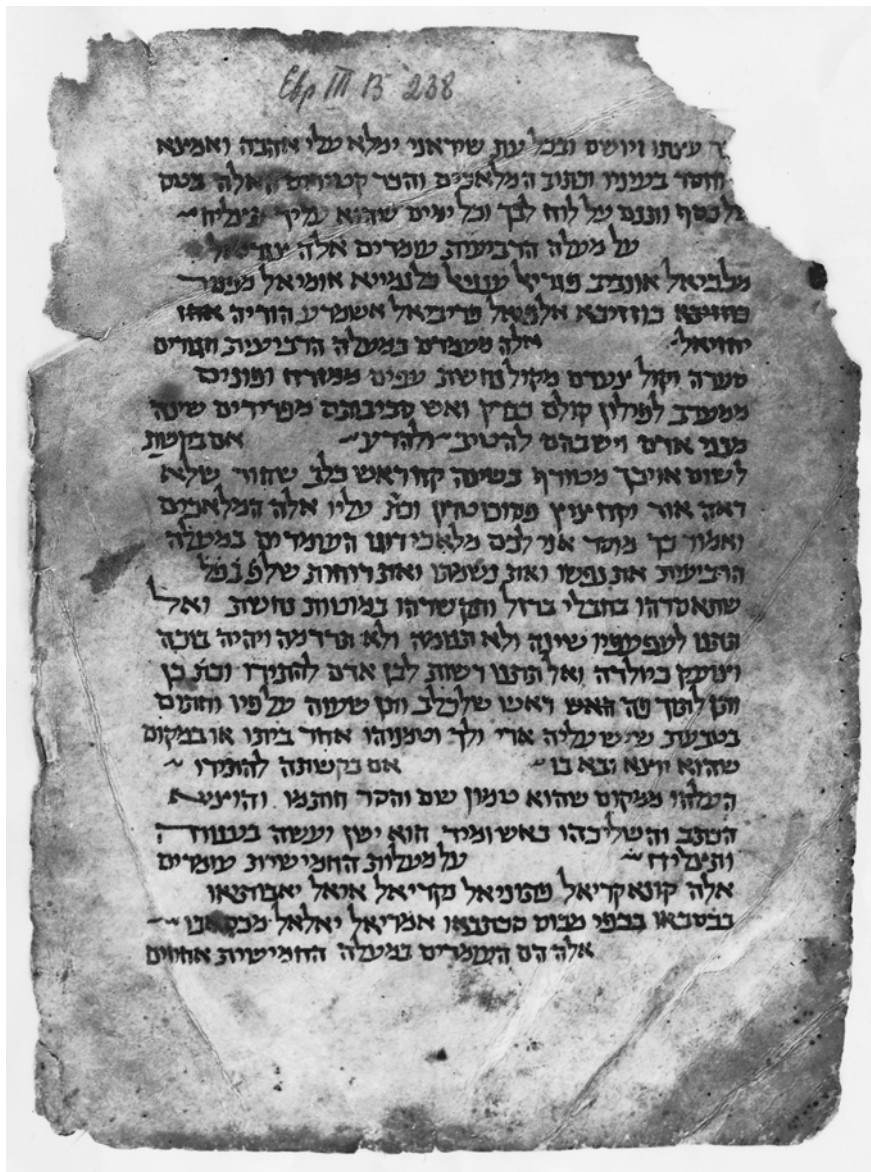 Евр III B 238
עצתו ויושם ובכל עת שיראני ימלא עלי אהבה ואמצא
וחסד בעיניו וכתוב המלאכים והכר קטירים האלה בטס
שלכסף ותנם על לוח לבך וכל ימים שהוא עליך תצליח
על מעלה הרביעית עומדים אלה
מלכיאל אומיאל
פריביאל אשמדע הודיה אחז
יחזיאל אלה מעמדם במעלה הרביעית חגורים
סערה וקול צעדם מקול נחשת עפים ממזרח ופונים
ממערב לפילון קולם כברק ואש סביבותם מפרידים שינה
מבני אדם וישבהם להטיב ולהרע אם בקשת
לשום אויבך מטורף בשינה קח ראש כלב שחור שלא
ראה אור וקח ציץ וכת עליו אלה המלאכים
ואמור כך מוסר אני לכם מלאכי רוגז העומדים במעלה
הרביעית את נפשו ואת נשמתו ואת רוחות שלפ בפל
שתאסרהו בחבלי ברזל ותקשרהו במוטות נחשת ואל
תתנו לעפעפיו שינה ולא תנומה ולא תרדמה ויהיה בוכה
וצועק כיולדה ואל תתנו רשות לבן אדם להתירו וכת כן
ותן לתוך פה ראש שלכלב ותן שעוה על פיו וחתום
בטבעת שיש עליה ארי ולך וטמניהו אחר ביתו או במקום
שהוא יוצא ובא בו אם בקשתה להתירו
העלהו ממקום שהוא טמון שם והסר חותמו והוציא
הכתב והשליכהו באש ומיד הוא ישן ועשה בענוה
ותצליח על מעלות החמישית עומדים
אלה
אמריאל יאלאל
אלה הם העומדים במעלה החמישית אחוזים